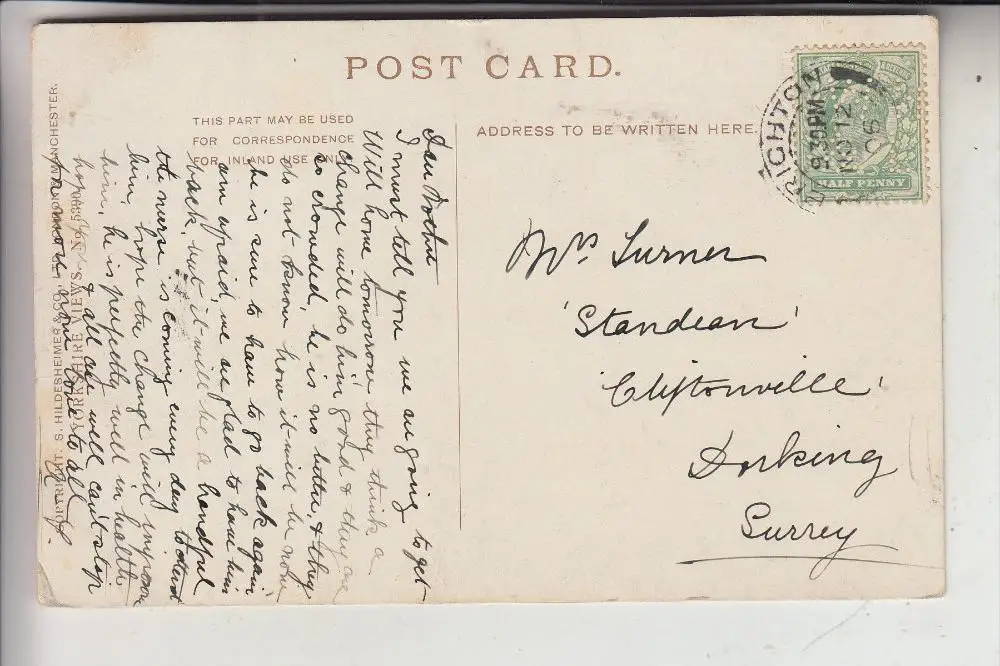 POST CARD.
THIS PART MAY BE USED
FOR CORRESPONDENCE
FOR INLAND USE ONLY
ADDRESS TO BE WRITTEN HERE.
BRIGHTON
9.30PM
NO 12
06
HALF PENNY
Mrs Turner
'Standean'
'Cliftonville'
Dorking
Surrey
I must tell you we are going to get
Will home tomorrow they think a
change will do him good & they are
so crowded, he is no better, & they
do not know how it will be now
he is sure to have to go back again
am afraid, we are glad to have him
back, but it will be a handful
the nurse is coming every day to
him, hope the change will improve
him, he is perfectly well in health
hope all are well can't stop
for more love to all
COPYRIGHT. S. HILDESHEIMER & CO., LTD. LONDON & MANCHESTER.
YORKSHIRE VIEWS. No. 5390